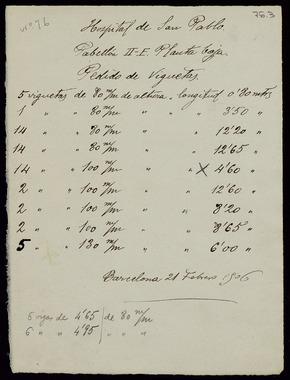 nº 76
75.3
Hospital de San Pablo.
Pabellón II-E. Planta baja.
Pedido de Viguetas.
5 viguetas de 80 m/m de altura. longitud 0'80 mtrs
1 " " 80 m/m " " 3'50 "
14 " " 80 m/m " " 12'20 "
14 " " 80 m/m " " 12'65 "
14 " " 100 m/m " " X 4'60 "
2 " " 100 m/m " " 12'60 "
2 " " 100 m/m " " 8'20 "
2 " " 100 m/m " " 8'65 "
5 " " 130 m/m " " 6'00 "
Barcelona 21 Febrero 1906
5 vigas de 4'65 de 80 m/m
6 " " 4'95 " " "